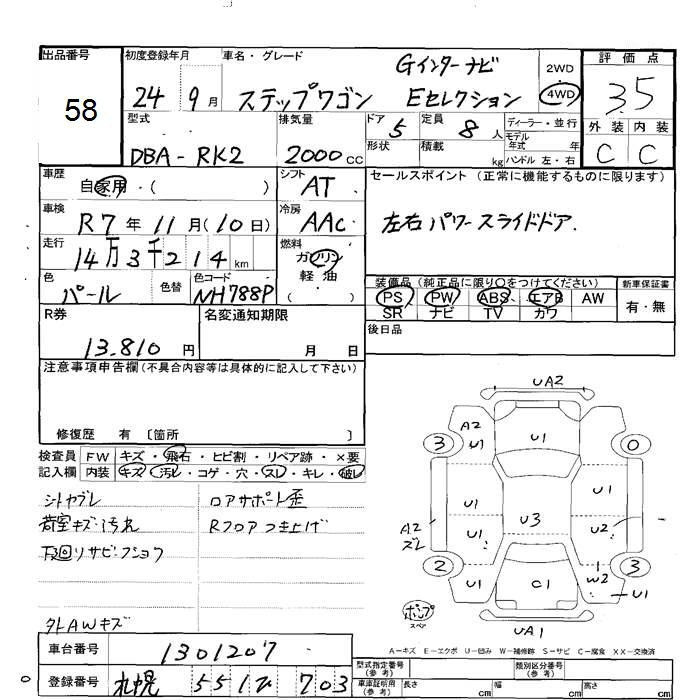 出品番号
58
初度登録年月
24 9月
車名・グレード
ステップワゴン
Gインターナビ
Eセレクション
2WD
4WD
評価点
3.5
外装 内装
C C
型式
DBA-RK2
排気量
2000cc
ドア 5
形状
定員 8人
積載 kg
ディーラー・並行
モデル年式 年
ハンドル 左・右
車歴
自家用・( )
シフト
AT
セールスポイント (正常に機能するものに限ります)
左右パワースライドドア.
車検
R7年11月(10日)
冷房
AAC
走行
14万3千214km
燃料
ガソリン
軽油
( )
色
パール
色替
色コード
NH788P
装備品(純正品に限り○をつけてください)
PS PW ABS エアB AW
SR ナビ TV カワ
新車保証書
有・無
R券
13.810円
名変通知期限
月 日
後日品
注意事項申告欄(不具合内容等は具体的に記入して下さい)
修復歴 有 〔箇所 〕
検査員記入欄
FW キズ・飛石・ヒビ割・リペア跡・×要
内装 キズ・汚レ・コゲ・穴・スレ・キレ・破レ
シートヤブレ
荷室キズ・汚れ
下廻リサビ・フショク
外AWキズ
ロアサポート歪
Rフロアつき上げ
UA2
A2
U1
U1
3
0
U1
U1
A2
ズレ
U1
U3
U2
2
3
U1
C1
W2
U1
UA1
ポンプ
スペア
A-キズ E-エクボ U-凹み W-補修跡 S-サビ C-腐食 XX-交換済
車台番号
1301207
登録番号
札幌 551ひ703
型式指定番号
(参考)
類別区分番号
(参考)
車庫証明用
(参考)
長さ cm
幅 cm
高さ cm